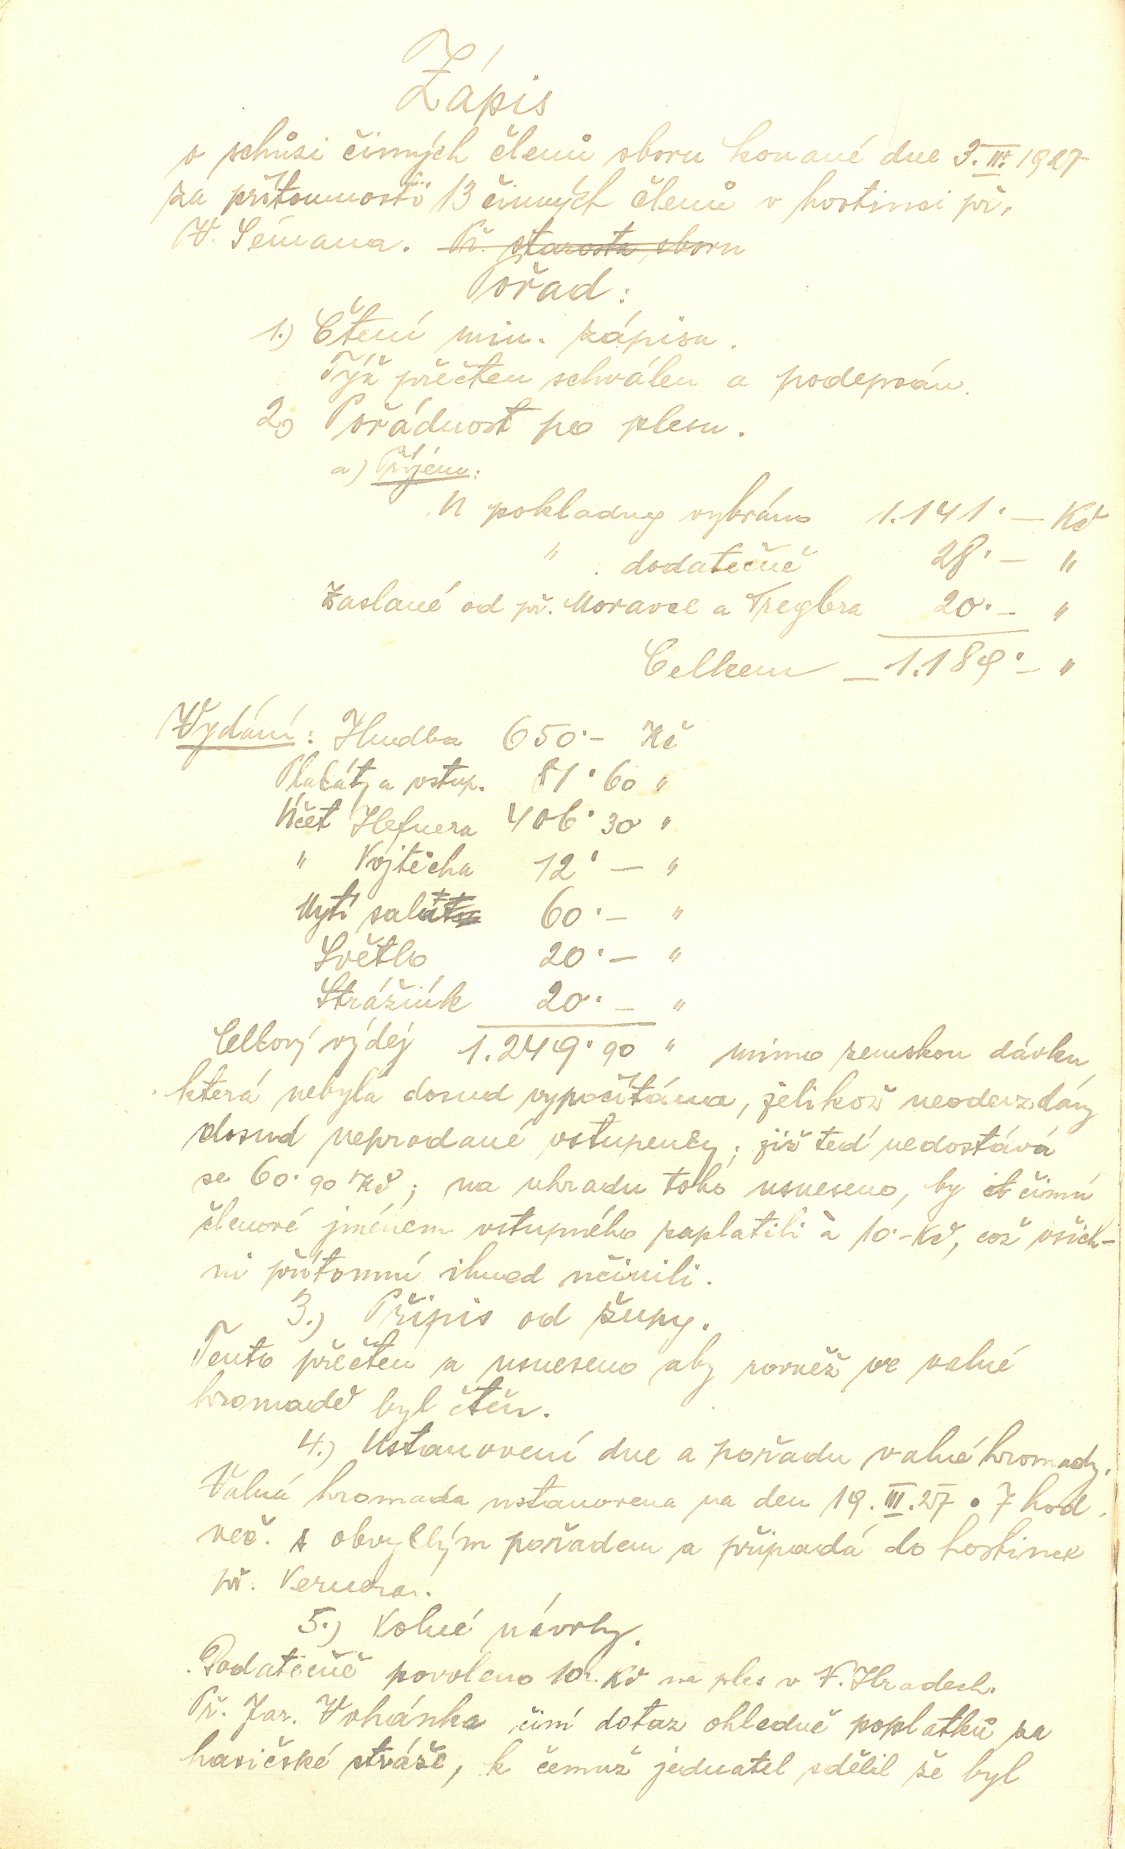 Zápis
o schůzi činných členů sboru konané dne 3.III. 1927
za přítomnosti 13 činných členů v hostinci př.
V. Sémana. Př. starosta sboru
Pořad:
1.) Čtení min. zápisu.
Týž přečten schválen a podepsán.
2.) Pořádnost po plesu.
a) Příjem:
U pokladny vybráno 1.141·— Kč
" dodatečně 28·— "
Zaslané od př. Moravce a Treglra 20·— "
Celkem 1.189·— "
Vydání: Hudba 650·— Kč
Plakáty a vstup. 81·60 "
Účet Hefnera 406·30 "
" Vojtěcha 12·— "
Mytí sálu 60·— "
Světlo 20·— "
Strážník 20·— "
Celkový výdej 1.249·90 " mimo zemskou dávku
která nebyla dosud vypočítána, jelikož neodevzdány
dosud neprodané vstupenky; již teď nedostává
se 60·90 Kč; na uhradu toho usneseno, by činní
členové jménem vstupného zaplatili à 10·- Kč, což všich-
ni přítomní ihned učinili.
3.) Přípis od župy.
Tento přečten a usneseno aby rovněž ve valné
hromadě byl čten.
4.) Ustanovení dne a pořadu valné hromady.
Valná hromada ustanovena na den 19.III.27 o 7 hod.
več. s obvyklým pořadem a připadá do hostince
př. Vernera.
5.) Volné návrhy.
Dodatečně povoleno 10·- Kč na ples v V. Hradech.
Př. Jar. Vohánka činí dotaz ohledně poplatků za
hasičské stráže, k čemuž jednatel sdělil že byl